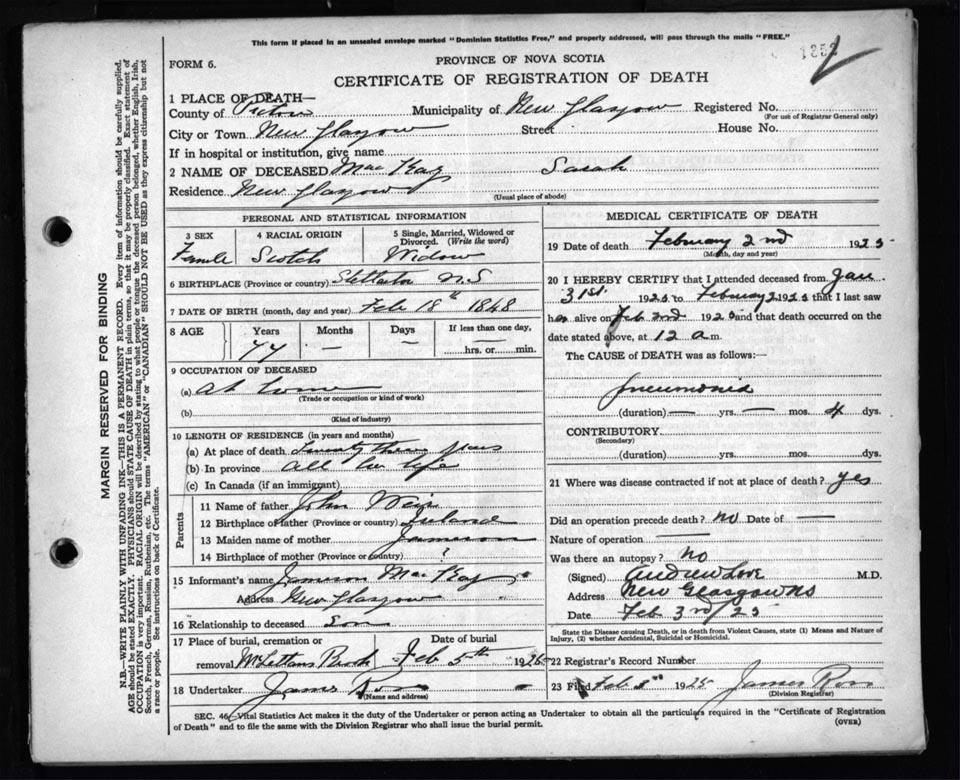 This form if placed in an unsealed envelope marked "Dominion Statistics Free," and properly addressed, will pass through the mails "FREE."
1252
FORM 6.
PROVINCE OF NOVA SCOTIA
CERTIFICATE OF REGISTRATION OF DEATH
1 PLACE OF DEATH—
County of Pictou Municipality of New Glasgow Registered No.
(For use of Registrar General only)
City or Town New Glasgow Street House No.
If in hospital or institution, give name
2 NAME OF DECEASED Mac Kay Sarah
Residence New Glasgow (Usual place of abode)
PERSONAL AND STATISTICAL INFORMATION
3 SEX 4 RACIAL ORIGIN 5 Single, Married, Widowed or Divorced. (Write the word)
Female Scotch Widow
6 BIRTHPLACE (Province or country) Stellarton N.S
7 DATE OF BIRTH (month, day and year) Feb 18th 1848
8 AGE Years Months Days If less than one day,
77 — — hrs. or min.
9 OCCUPATION OF DECEASED
(a) At home
(Trade or occupation or kind of work)
(b)
(Kind of industry)
10 LENGTH OF RESIDENCE (in years and months)
(a) At place of death twenty three years
(b) In province all her life
(c) In Canada (if an immigrant)
Parents
11 Name of father John Weir
12 Birthplace of father (Province or country) Ireland
13 Maiden name of mother Jameson
14 Birthplace of mother (Province or country) ?
15 Informant's name Jameson Mac Kay
Address New Glasgow
16 Relationship to deceased Son
17 Place of burial, cremation or removal Date of burial
Feb 5th 1925
18 Undertaker James Ross
(Name and address)
MEDICAL CERTIFICATE OF DEATH
19 Date of death February 2nd 1925
(Month, day and year)
20 I HEREBY CERTIFY that I attended deceased from Jan
31st 1925 to February 2 1925 that I last saw
her alive on Feb 2nd 1925 and that death occurred on the
date stated above, at 12 a m.
The CAUSE OF DEATH was as follows:
pneumonia
(duration) — yrs. — mos. 4 dys.
CONTRIBUTORY
(Secondary)
(duration) yrs. mos. dys.
21 Where was disease contracted if not at place of death? yes
Did an operation precede death? no Date of —
Nature of operation —
Was there an autopsy? no
(Signed) Andrew Love M.D.
Address New Glasgow NS
Date Feb 3rd/25
State the Disease causing Death, or in death from Violent Causes, state (1) Means and Nature of Injury, (2) whether Accidental, Suicidal or Homicidal.
22 Registrar's Record Number
23 Filed Feb 3rd 1925 James Ross
(Division Registrar)
SEC. 46—Vital Statistics Act makes it the duty of the Undertaker or person acting as Undertaker to obtain all the particulars required in the "Certificate of Registration
of Death" and to file the same with the Division Registrar who shall issue the burial permit.
(OVER)
MARGIN RESERVED FOR BINDING
N.B.—WRITE PLAINLY WITH UNFADING INK—THIS IS A PERMANENT RECORD. Every item of information should be carefully supplied.
AGE should be stated EXACTLY. PHYSICIANS should STATE CAUSE OF DEATH in plain terms, so that it may be properly classified. Exact statement of
OCCUPATION is very important. RACIAL ORIGIN will be described by stating to what people or tongue the deceased person belonged, whether English, Irish,
Scotch, French, German, Russian, Ruthenian, etc. The terms "AMERICAN" or "CANADIAN" SHOULD NOT BE USED as they express citizenship but not
a race or people. See instructions on back of Certificate.